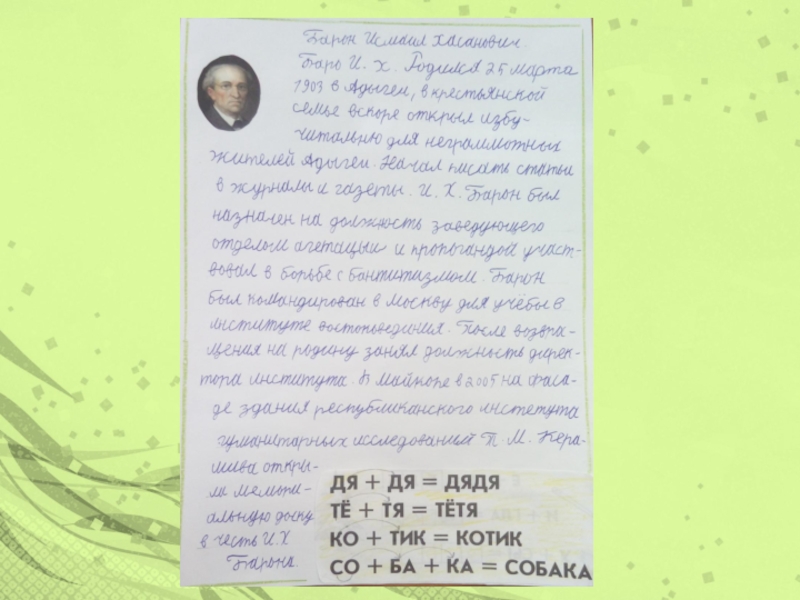 Барон Исмаил Хасанович.
Баро И. Х. Родился 25 марта
1903 в Адыгеи, в крестьянской
семье вскоре открыл избу-
читальню для неграммотных
жителей Адыгеи. Начал писать статьи
в журналы и газеты. И. Х. Барон был
назначен на должность заведующего
отделом агетацыи и пропогандой участ-
вовал в борьбе с бантитазмом. Барон
был командирован в Москву для учёбы в
институте востоковединия. После возвра-
щения на родину занял должность дирек-
тора института. В Майкопе в 2005 на фаса-
де здания республиканского инстетута
гуманитарных исследований Т. М. Кера-
шева откры-
ли мемори-
альную доску
в честь И. Х
Барона.
ДЯ + ДЯ = ДЯДЯ
ТЁ + ТЯ = ТЁТЯ
КО + ТИК = КОТИК
СО + БА + КА = СОБАКА